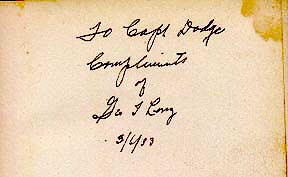 To Capt Dodge
Compliments
of
Geo T Long
3/1/33